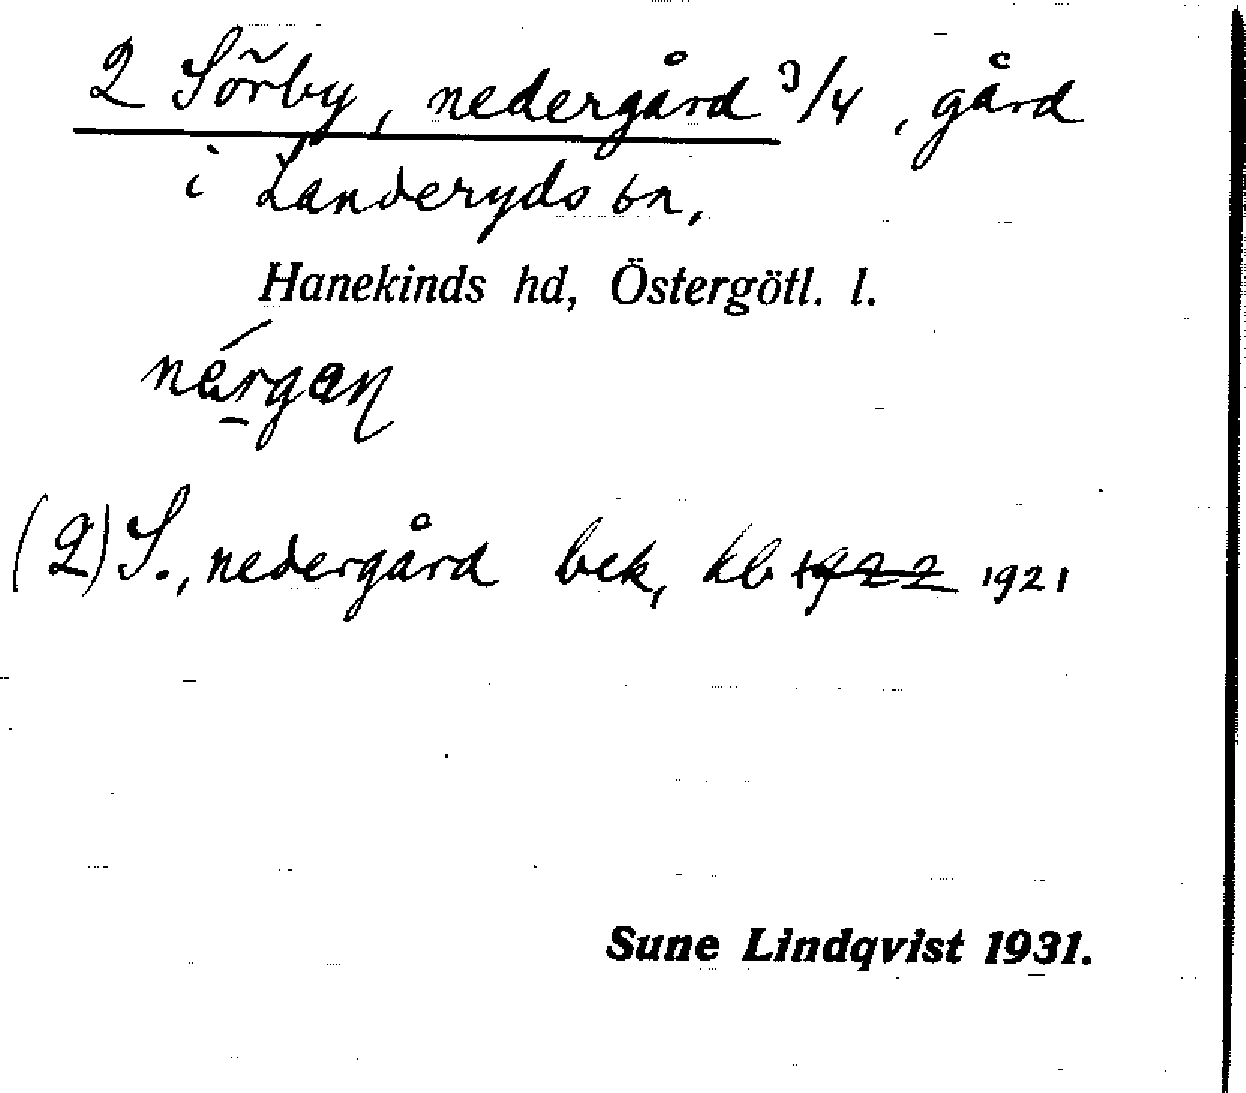 2 Sörby, nedergård 3/4, gård
i Landeryds sn,
Hanekinds hd, Östergötl. l.
nérgan
(2) S., nedergård bek, kb 1922 1921
Sune Lindqvist 1931.